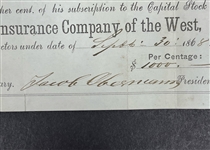 her cent. of his subscription to the Capital Stock
Insurance Company of the West,
ctors under date of Sept. 30th 1868
Per Centage:
$ 1000.
ary. Jacob Obermann President